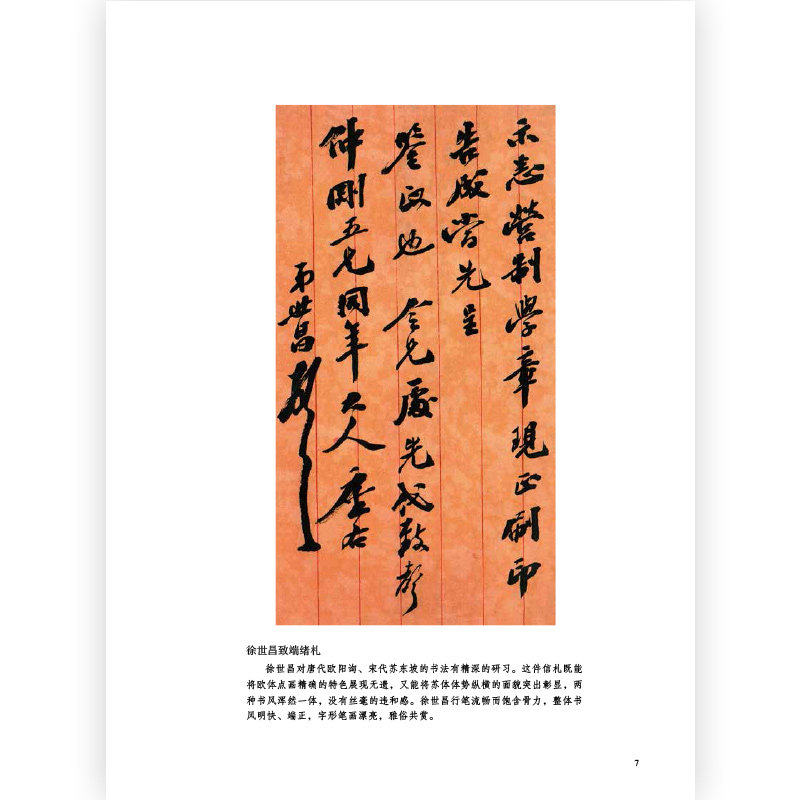 示悉營制學章現正刷印
告成當先呈
鑒政也令兄處先代致聲
仲剛五兄同年大人座右
弟世昌頓
徐世昌致端绪札
徐世昌对唐代欧阳询、宋代苏东坡的书法有精深的研习。这件信札既能
将欧体点画精确的特色展现无遗，又能将苏体体势纵横的面貌突出彰显，两
种书风浑然一体，没有丝毫的违和感。徐世昌行笔流畅而饱含骨力，整体书
风明快、端正，字形笔画漂亮，雅俗共赏。
7